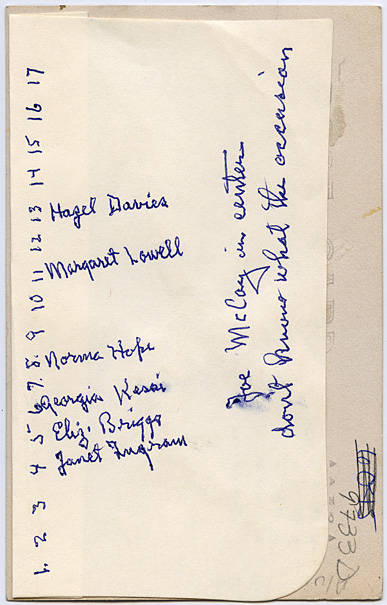 1. 2 3 4 5 6 7. 8. 9 10 11 12 13 14 15 16 17
Hazel Davies
Margaret Lowell
Norma Hope
Georgia Kasai
Eliz. Briggs
Janet Ingram
Joe McCoy in center
don't know what the occassion
9733 D